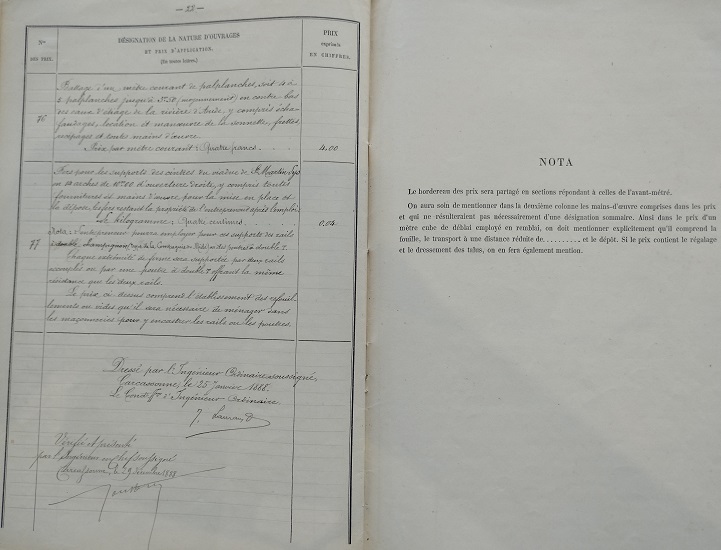 — 22 —
Nos
DES PRIX.
DÉSIGNATION DE LA NATURE D'OUVRAGES
ET PRIX D'APPLICATION.
(En toutes lettres.)
PRIX
exprimés
EN CHIFFRES.
76
Battage d'un mètre courant de palplanches, soit 4 à
5 palplanches jusqu'à (moyennement) en contre bas
des eaux d'étiage de la rivière d'Aude, y compris écha-
faudages, location et manœuvre de la sonnette, frettes
recépages et toute main d'œuvre.
Prix par mètre courant : Quatre francs. 4.00
77
Fers pour les supports des cintres en maçonnerie de St Martin Lys
en arches de 10m00 d'ouverture droite, y compris toutes
fournitures et mains d'œuvre pour la mise en place et
la dépose, les fers restant la propriété de l'entrepreneur après l'emploi
Le kilogramme : Quatre centimes. 0.04
Nota : L'entrepreneur pourra employer pour ces supports des rails
à double champignon de la Compagnie du Midi ou des poutres à double T.
Chaque extrémité de ferme sera supportée par deux rails
accouplés ou par une poutre à double T offrant la même
résistance que les deux rails.
Le prix ci-dessus comprend l'établissement des refouil-
lements ou vides qu'il sera nécessaire de ménager dans
les maçonneries pour y encastrer les rails ou les poutres.
Dressé par l'Ingénieur Ordinaire soussigné,
Carcassonne, le 25 Janvier 1888.
Le Condr ffons d'Ingénieur Ordinaire
Vérifié et présenté
par l'Ingénieur en chef soussigné
Carcassonne, le 29
NOTA
Le bordereau des prix sera partagé en sections répondant à celles de l'avant-métré.
On aura soin de mentionner dans la deuxième colonne les mains-d'œuvre comprises dans les prix
et qui ne résulteraient pas nécessairement d'une désignation sommaire. Ainsi dans le prix d'un
mètre cube de déblai employé en remblai, on doit mentionner explicitement qu'il comprend la
fouille, le transport à une distance réduite de.......... et le dépôt. Si le prix contient le régalage
et le dressement des talus, on en fera également mention.